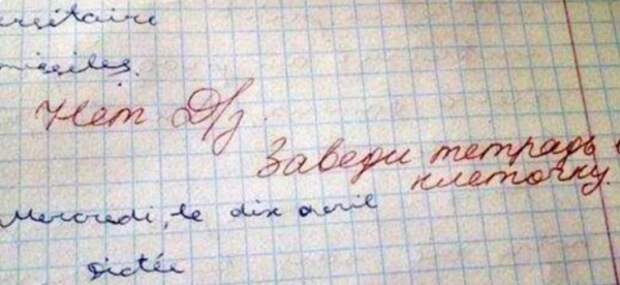 ersitaire
missiles.
Нет Д/з.
Заведи тетрадь в
клеточку.
Mercredi, le dix avril
Dictée